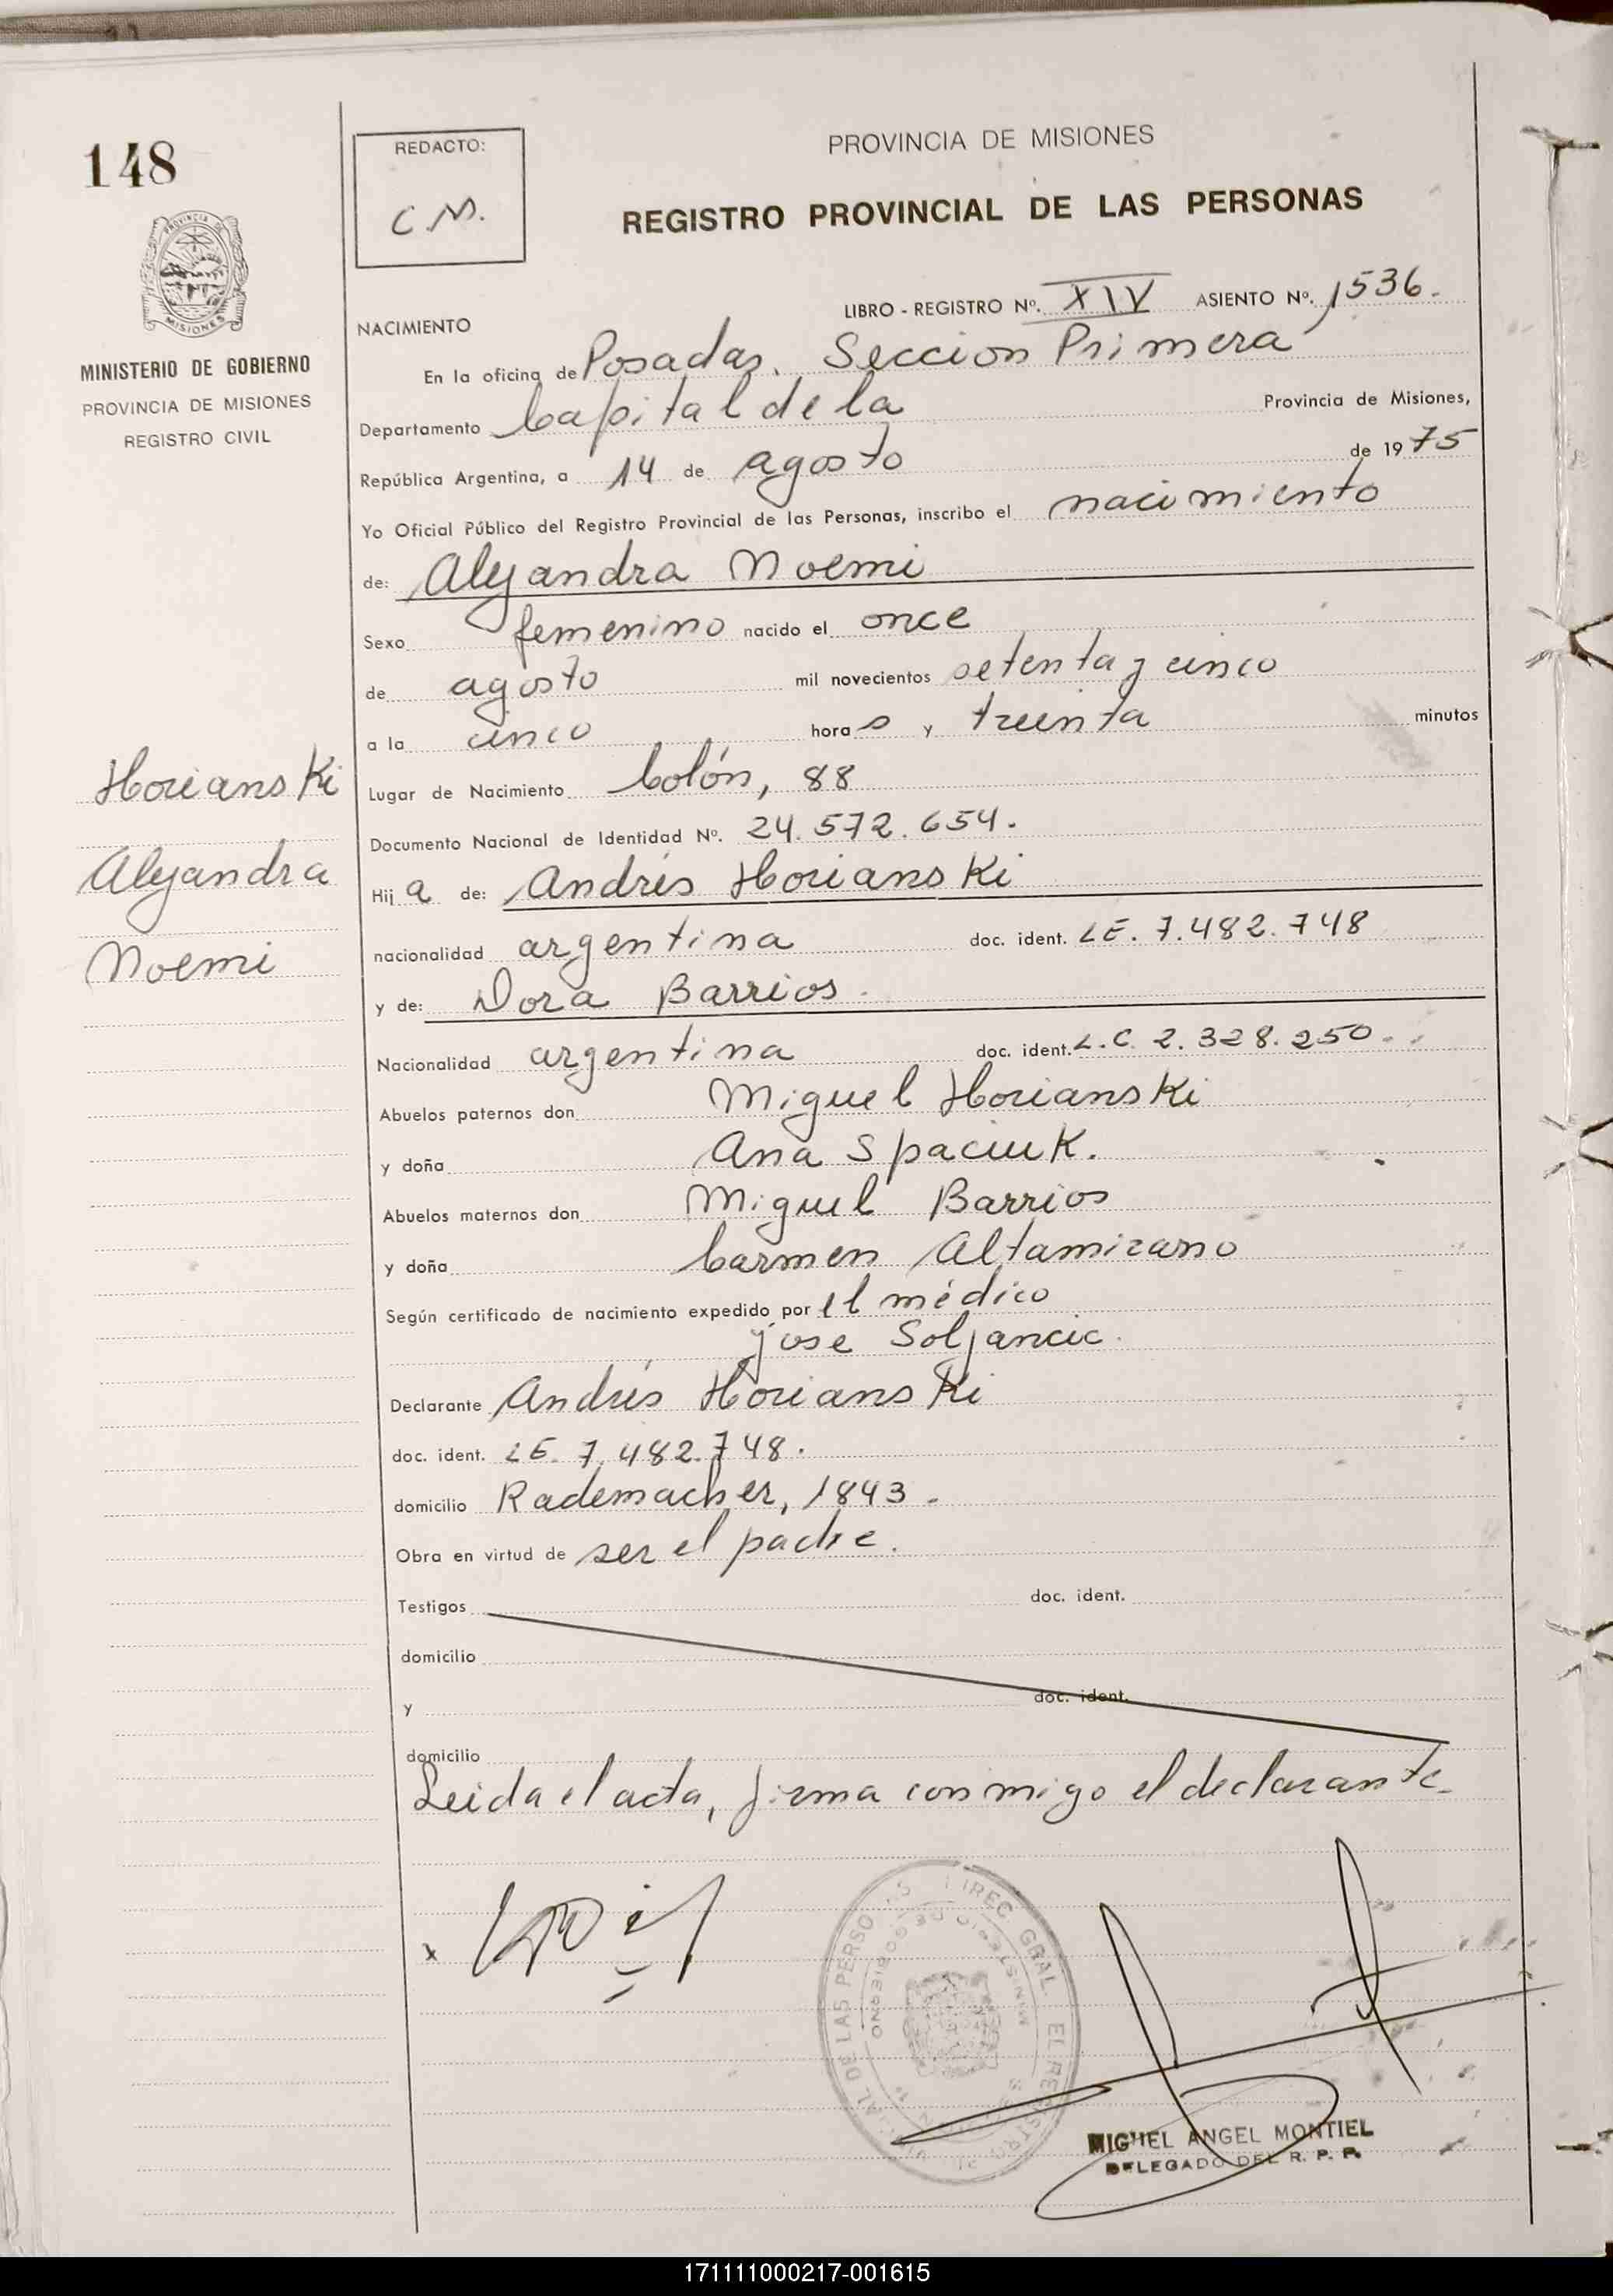 148
REDACTO:
C.M.
PROVINCIA DE MISIONES
REGISTRO PROVINCIAL DE LAS PERSONAS
LIBRO - REGISTRO Nº. XIV ASIENTO Nº. 1536.
MINISTERIO DE GOBIERNO
PROVINCIA DE MISIONES
REGISTRO CIVIL
NACIMIENTO
En la oficina de Posadas. Seccion Primera
Departamento Capital de la Provincia de Misiones,
República Argentina, a 14 de agosto de 1975
Yo Oficial Público del Registro Provincial de las Personas, inscribo el nacimiento
de: Alejandra Noemi
Sexo femenino nacido el once
de agosto mil novecientos setenta y cinco
a la cinco horas y treinta minutos
Lugar de Nacimiento Colón, 88
Documento Nacional de Identidad Nº. 24.572.654.
Horianski
Alejandra
Noemi
Hija de: Andrés Horianski
nacionalidad argentina doc. ident. LE. 7.482.748
y de: Dora Barrios.
Nacionalidad argentina doc. ident. L.C. 2.328.250..
Abuelos paternos don Miguel Horianski
y doña Ana Spaciuk.
Abuelos maternos don Miguel Barrios
y doña Carmen Altamirano
Según certificado de nacimiento expedido por el médico
jose Soljancic.
Declarante Andrés Horianski
doc. ident. LE. 7.482.748.
domicilio Rademacher, 1843.
Obra en virtud de ser el padre.
Testigos doc. ident.
domicilio
y doc. ident.
domicilio
Leida el acta, firma conmigo el declarante.
x
MIGUEL ANGEL MONTIEL
DELEGADO DEL R. P. P.
171111000217-001615